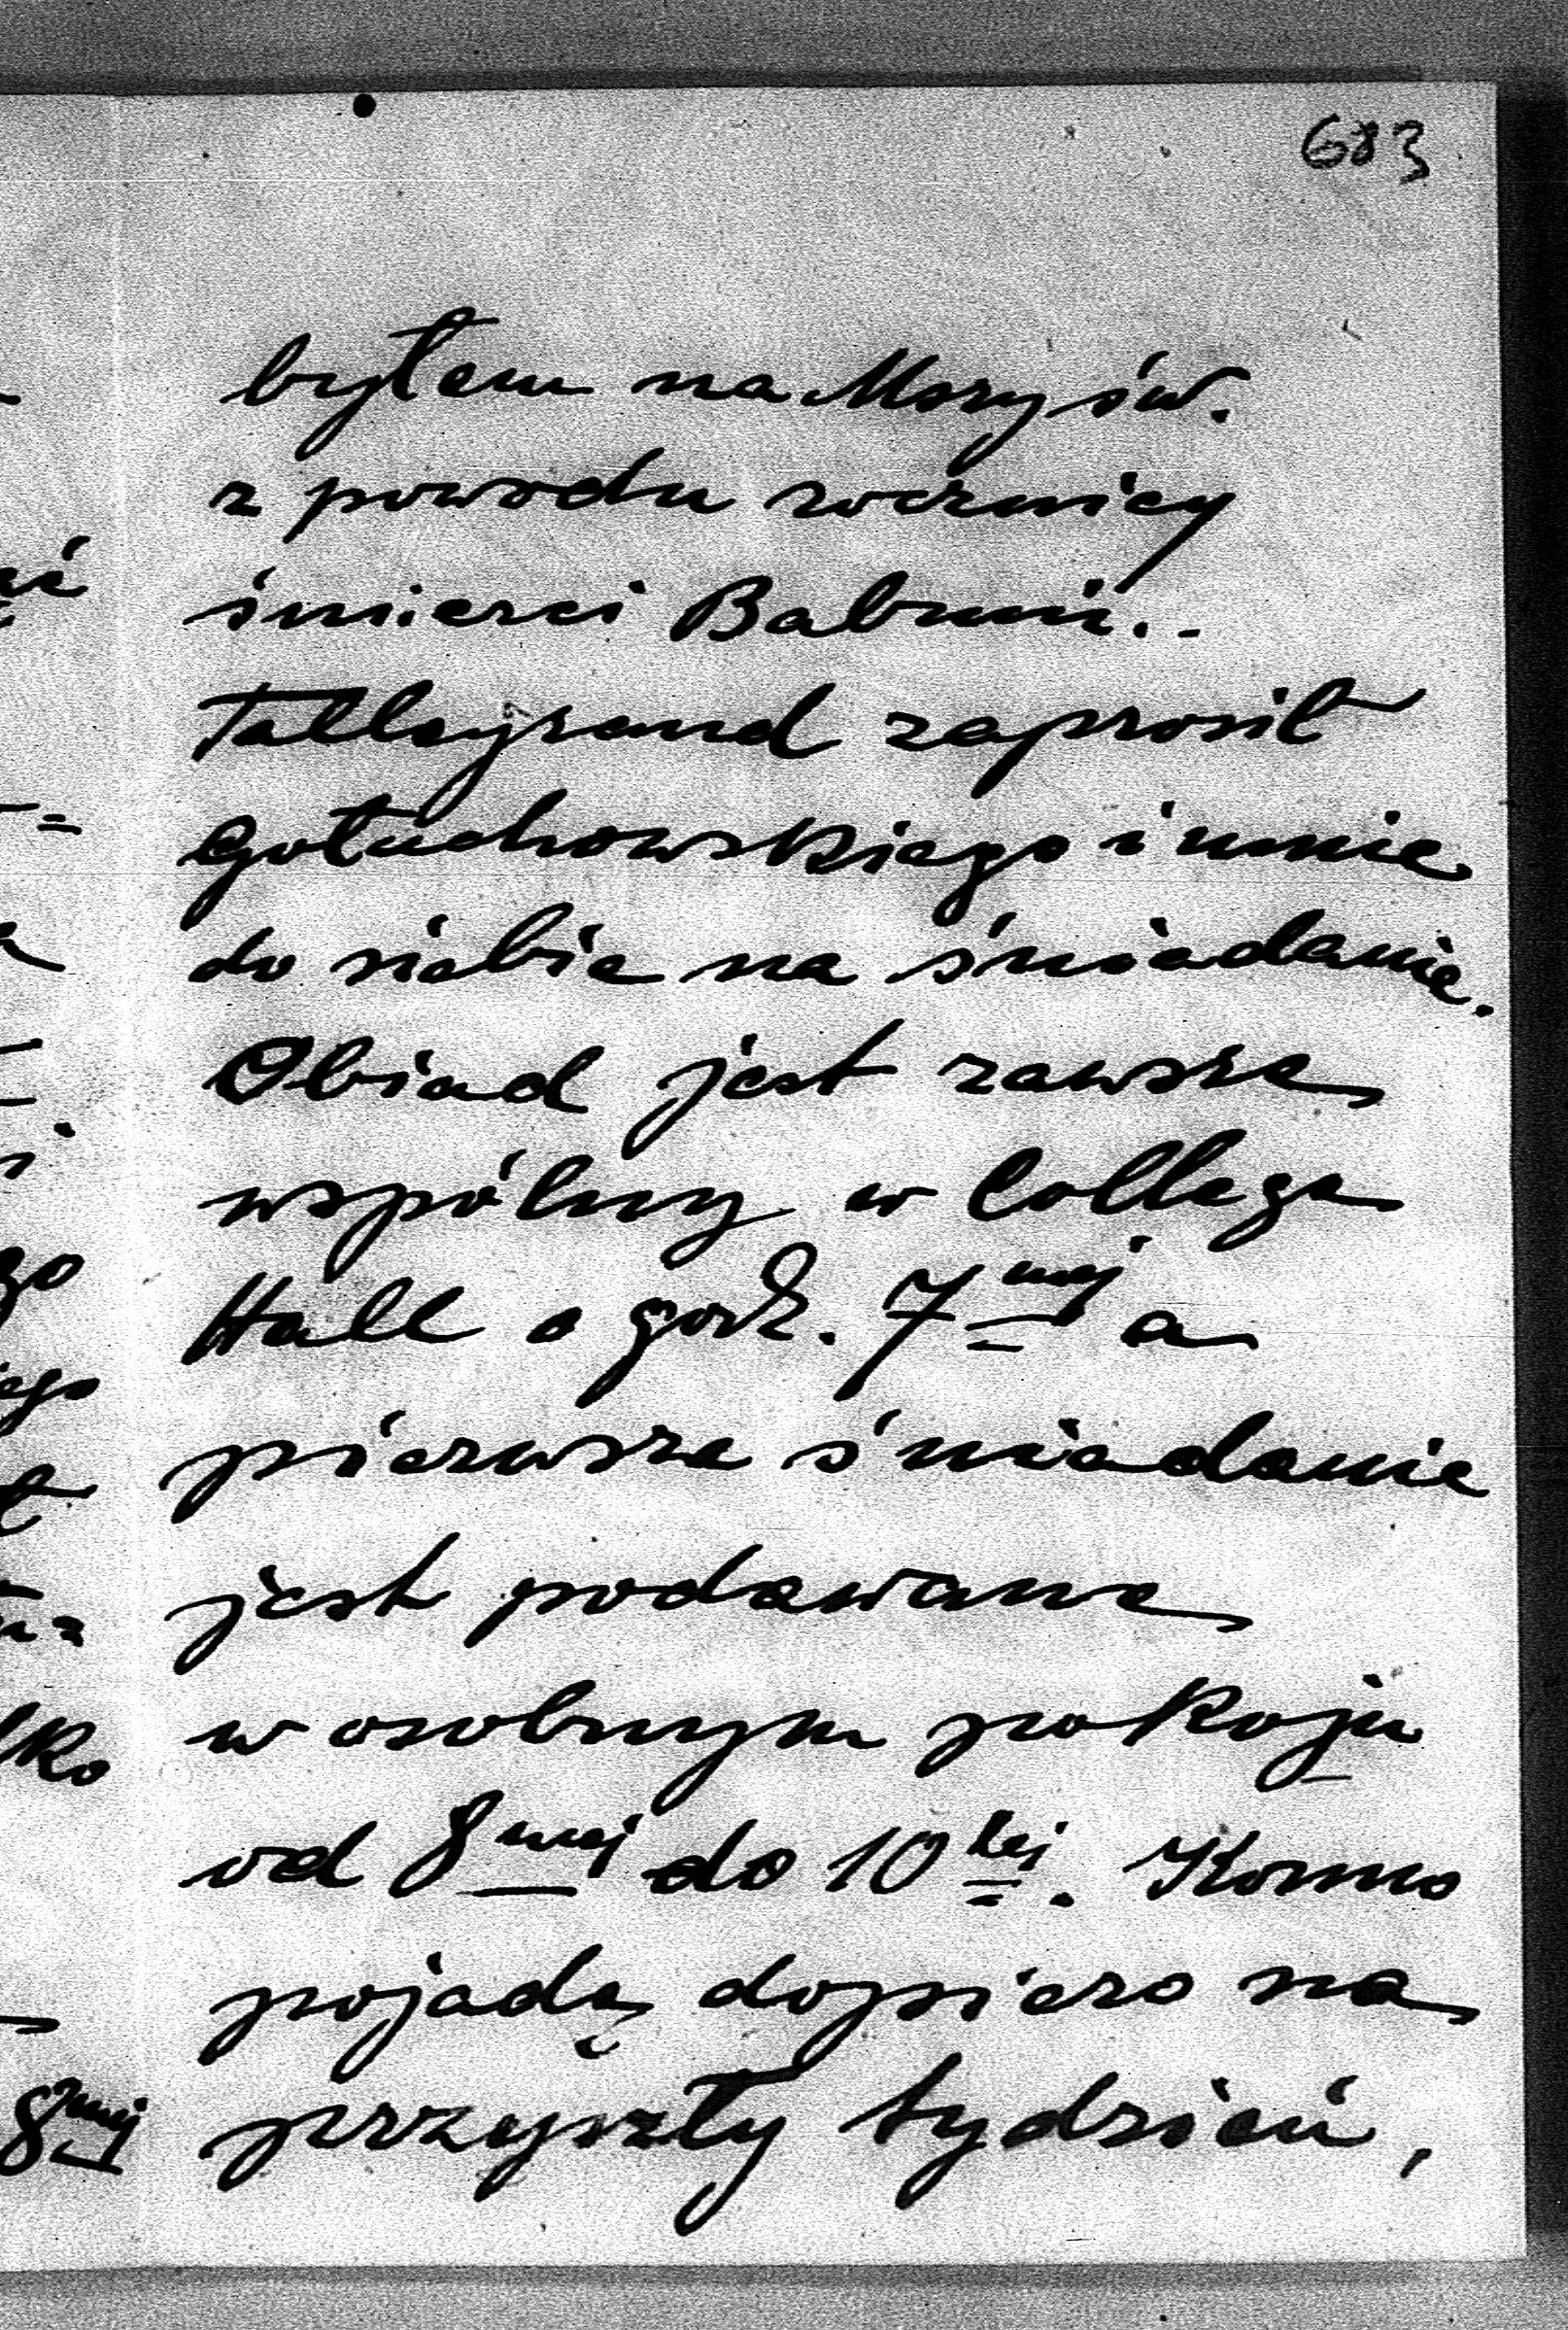 683
byłem na Mszy św.
z powodu rocznicy
śmierci Babuni. -
Talleyrand zaprosił
Gołuchowskiego i mnie
do siebie na śniadanie.
Obiad jest zawsze
wspólny w College
Hall o godz. 7mej a
pierwsze śniadanie
jest podawane
w osobnym pokoju
od 8mej do 10tej. Konno
pojadę dopiero na
przyszły tydzień,
8mej